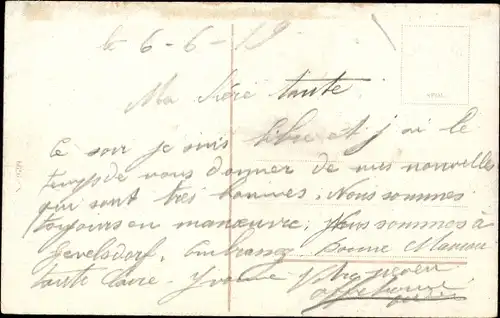 le 6-6-19
Ma chère tante
Ce soir je suis libre et j'ai le
temps de vous donner de mes nouvelles
qui sont très bonnes. Nous sommes
toujours en manœuvre. Nous sommes à
Gevelsdorf. Embrassez Bonne Maman
tante Claire - Yvonne Votre neveu